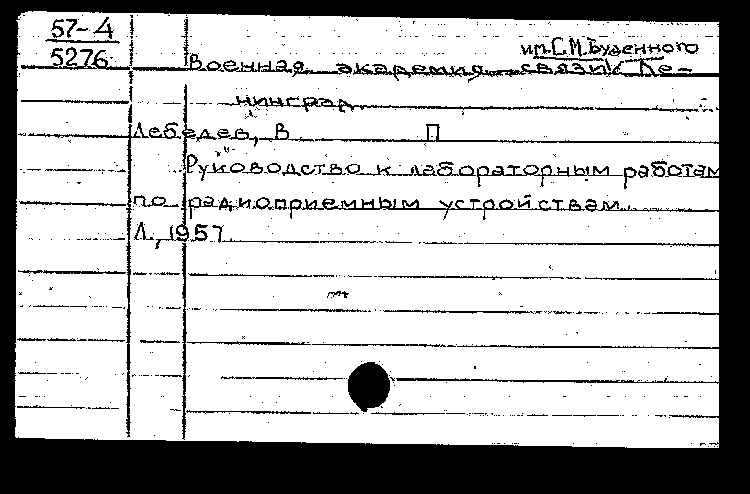 57-4
5276
им. С.М. Буденного
Военная академия связи Ле-
нинград.
Лебедев, В П
Руководство к лабораторным работам
по радиоприемным устройствам.
Л., 1957.